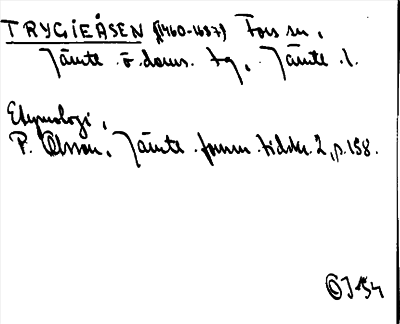 TRYGIEÅSEN (1460-1487) Fors sn.
Jämte. o. doms. tg. Jämte. l.
Etymologi.
P. Olsson. Jämtl. fornm. tidskr. 2, p. 158.
OJ 154